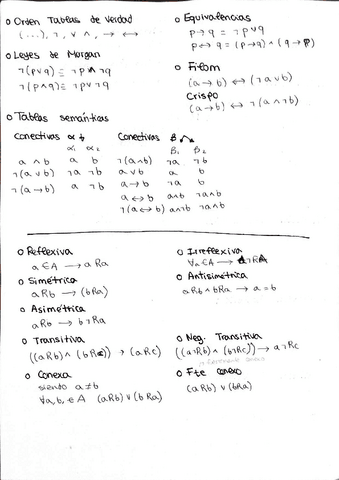 o Orden Tablas de verdad
(...), ¬, ∨ ∧, → ↔
o Leyes de Morgan
¬(p∨q) ≡ ¬p ∧ ¬q
¬(p∧q) ≡ ¬p ∨ ¬q
o Equivalencias
p→q = ¬p∨q
p↔q = (p→q) ∧ (q→p)
o Filom
(a→b) ↔ (¬a∨b)
Crispo
(a→b) ↔ ¬(a∧¬b)
o Tablas semánticas
Conectivas α
α₁ α₂
a ∧ b a b
¬(a∨b) ¬a ¬b
¬(a→b) a ¬b
Conectivas β
β₁ β₂
¬(a∧b) ¬a ¬b
a∨b a b
a→b ¬a b
a↔b a∧b ¬a∧¬b
¬(a↔b) a∧¬b ¬a∧b
o Reflexiva
a∈A → aRa
o Simétrica
aRb → (bRa)
o Asimétrica
aRb → b¬Ra
o Transitiva
((aRb) ∧ (bRc)) → (aRc)
o Conexa
siendo a≠b
∀a,b,∈A (aRb) ∨ (bRa)
o Irreflexiva
∀a∈A → a¬RA
o Antisimétrica
aRb ∧ bRa → a=b
o Neg. Transitiva
((a¬Rb) ∧ (b¬Rc)) → a¬Rc
o Fte conexo
(aRb) ∨ (bRa)